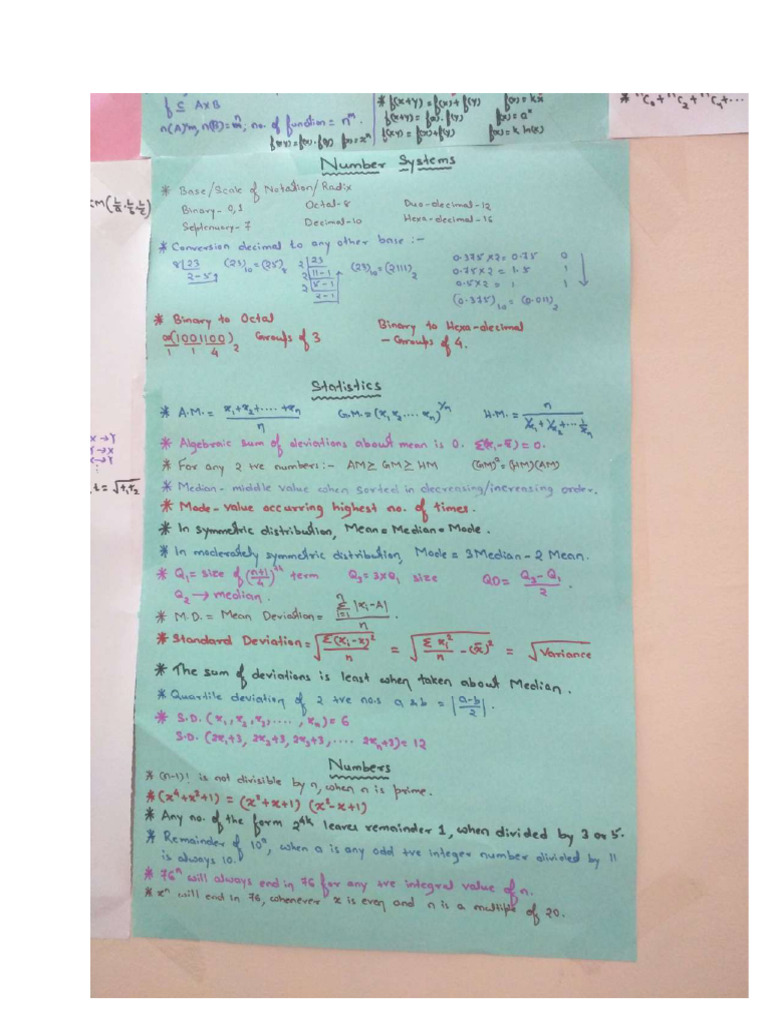 f ⊆ A×B
n(A)=m, n(B)=n; no. of function = n^m.
f(x+y) = f(x)+f(y) f(x) = kx
f(x+y) = f(x).f(y) f(x) = a^x
f(xy) = f(x).f(y) f(x) = x^n
f(xy) = f(x)+f(y) f(x) = k ln(x)
Number Systems
* Base/Scale of Notation/Radix
Binary-0,1 Octal-8 Duo-decimal-12
Septenary-7 Decimal-10 Hexa-decimal-16
* Conversion decimal to any other base :-
8|23 (23)₁₀=(25)₈ 2|23 (23)₁₀=(2111)₂ 0.375×2=0.75 0
2-5 2|11-1 0.75×2=1.5 1
2|5-1 0.5×2=1 1
2-1 (0.375)₁₀=(0.011)₂
* Binary to Octal Binary to Hexa-decimal
(1001100)₂ Groups of 3 - Groups of 4.
1 1 4
Statistics
* A.M. = (x₁+x₂+....+xₙ)/n G.M. = (x₁x₂....xₙ)^(1/n) H.M. = n/(1/x₁+1/x₂+...1/xₙ)
* Algebraic sum of deviations about mean is 0. Σ(xᵢ-x̄)=0.
* For any 2 +ve numbers :- AM≥GM≥HM (GM)²=(HM)(AM)
* Median - middle value when sorted in decreasing/increasing order.
* Mode - value occurring highest no. of times.
* In symmetric distribution, Mean=Median=Mode.
* In moderately symmetric distribution, Mode=3Median-2Mean.
* Q₁=size of ((n+1)/4)^th term Q₃=3×Q₁ size QD=(Q₃-Q₁)/2.
Q₂ → median.
* M.D. = Mean Deviation = Σ(i=1 to n)|xᵢ-A|/n.
* Standard Deviation = √(Σ(xᵢ-x)²/n) = √(Σxᵢ²/n-(x̄)²) = √Variance
* The sum of deviations is least when taken about Median.
* Quartile deviation of 2 +ve no.s a & b = |(a-b)/2|.
* S.D. (x₁,x₂,x₃,....,xₙ)=6
S.D. (2x₁+3, 2x₂+3, 2x₃+3,.... 2xₙ+3)=12
Numbers
* (n-1)! is not divisible by n, when n is prime.
* (x⁴+x²+1) = (x²+x+1) (x²-x+1)
* Any no. of the form 2^4k leaves remainder 1, when divided by 3 or 5.
* Remainder of 10^a, when a is any odd +ve integer number divided by 11
is always 10.
* 76^n will always end in 76 for any +ve integral value of n.
* x^n will end in 76, whenever x is even and n is a multiple of 20.